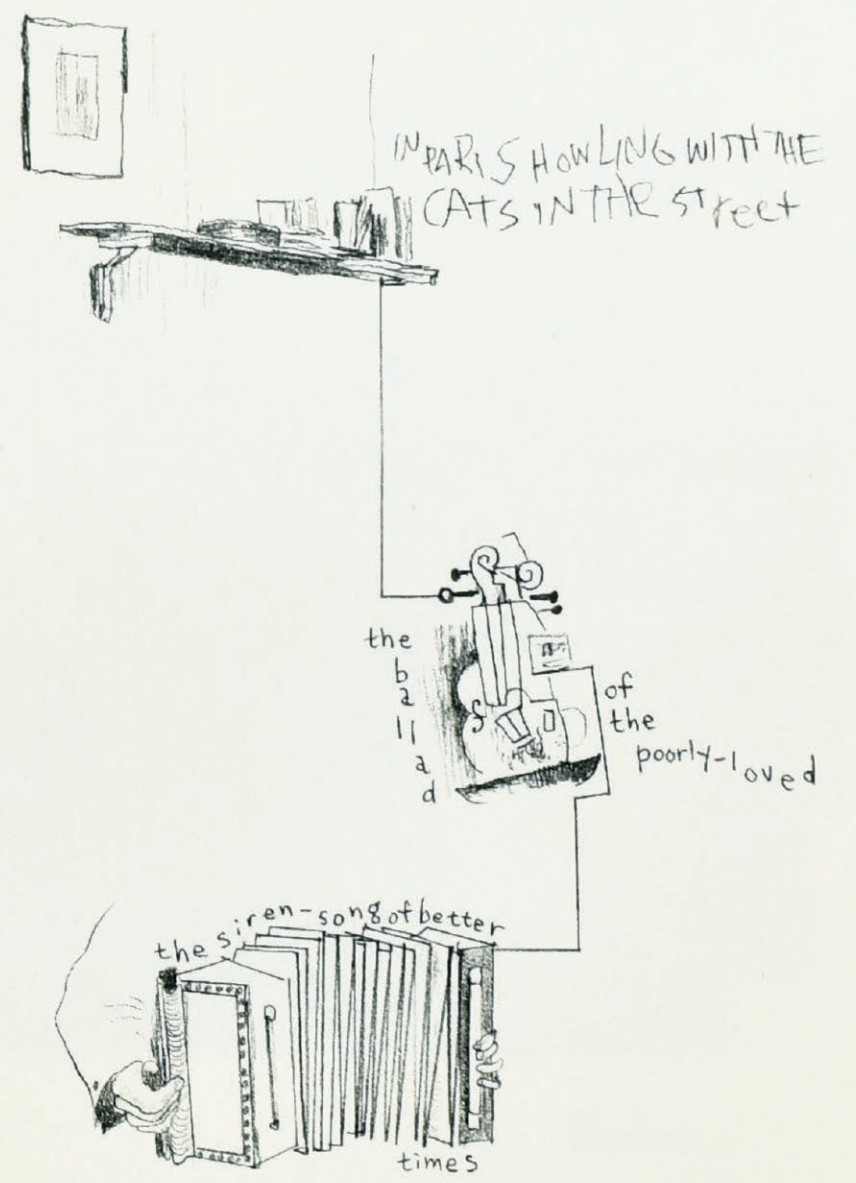 IN PARIS HOWLING WITH THE
CATS IN THE STreet
the
ballad
of
the
poorly-loved
the siren-song of better
times